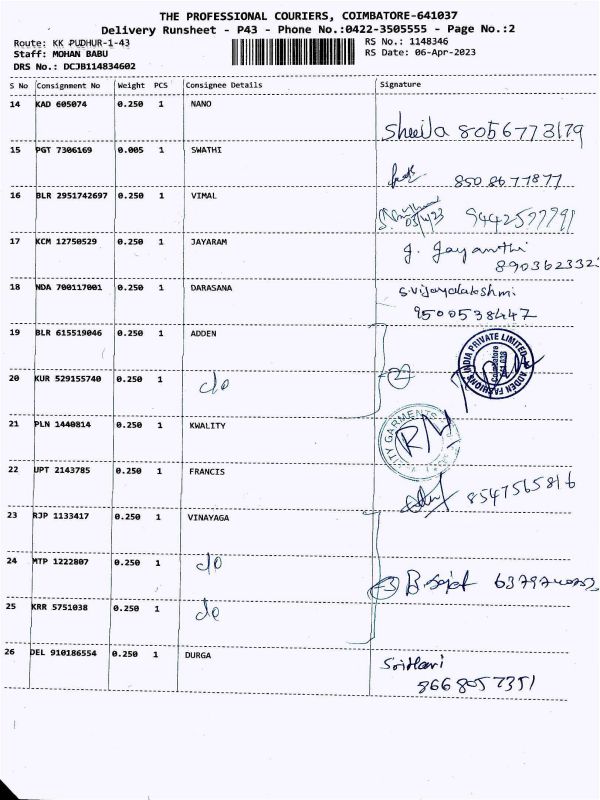 THE PROFESSIONAL COURIERS, COIMBATORE-641037
Delivery Runsheet - P43 - Phone No.:0422-3505555 - Page No.:2
Route: KK PUDHUR-1-43 RS No.: 1148346
Staff: MOHAN BABU RS Date: 06-Apr-2023
DRS No.: DCJB114834602
S No Consignment No Weight PCS Consignee Details Signature
14 KAD 605074 0.250 1 NANO
Sheela 8056773179
15 PGT 7306169 0.005 1 SWATHI
8508677877
16 BLR 2951742697 0.250 1 VIMAL
9442577791
17 KCM 12750529 0.250 1 JAYARAM
J. Jayanthi
8903623323
18 NDA 700117001 0.250 1 DARASANA
S.Vijayalakshmi
9500538447
19 BLR 615519046 0.250 1 ADDEN
ADDEN FASHIONS INDIA PRIVATE LIMITED
Coimbatore
641 038
20 KUR 529155740 0.250 1 do 2
21 PLN 1440814 0.250 1 KWALITY
GARMENTS
22 UPT 2143785 0.250 1 FRANCIS
8547565816
23 RJP 1133417 0.250 1 VINAYAGA
24 MTP 1222807 0.250 1 do
3 B
25 KRR 5751038 0.250 1 do
26 DEL 910186554 0.250 1 DURGA
SriHari
8668057351